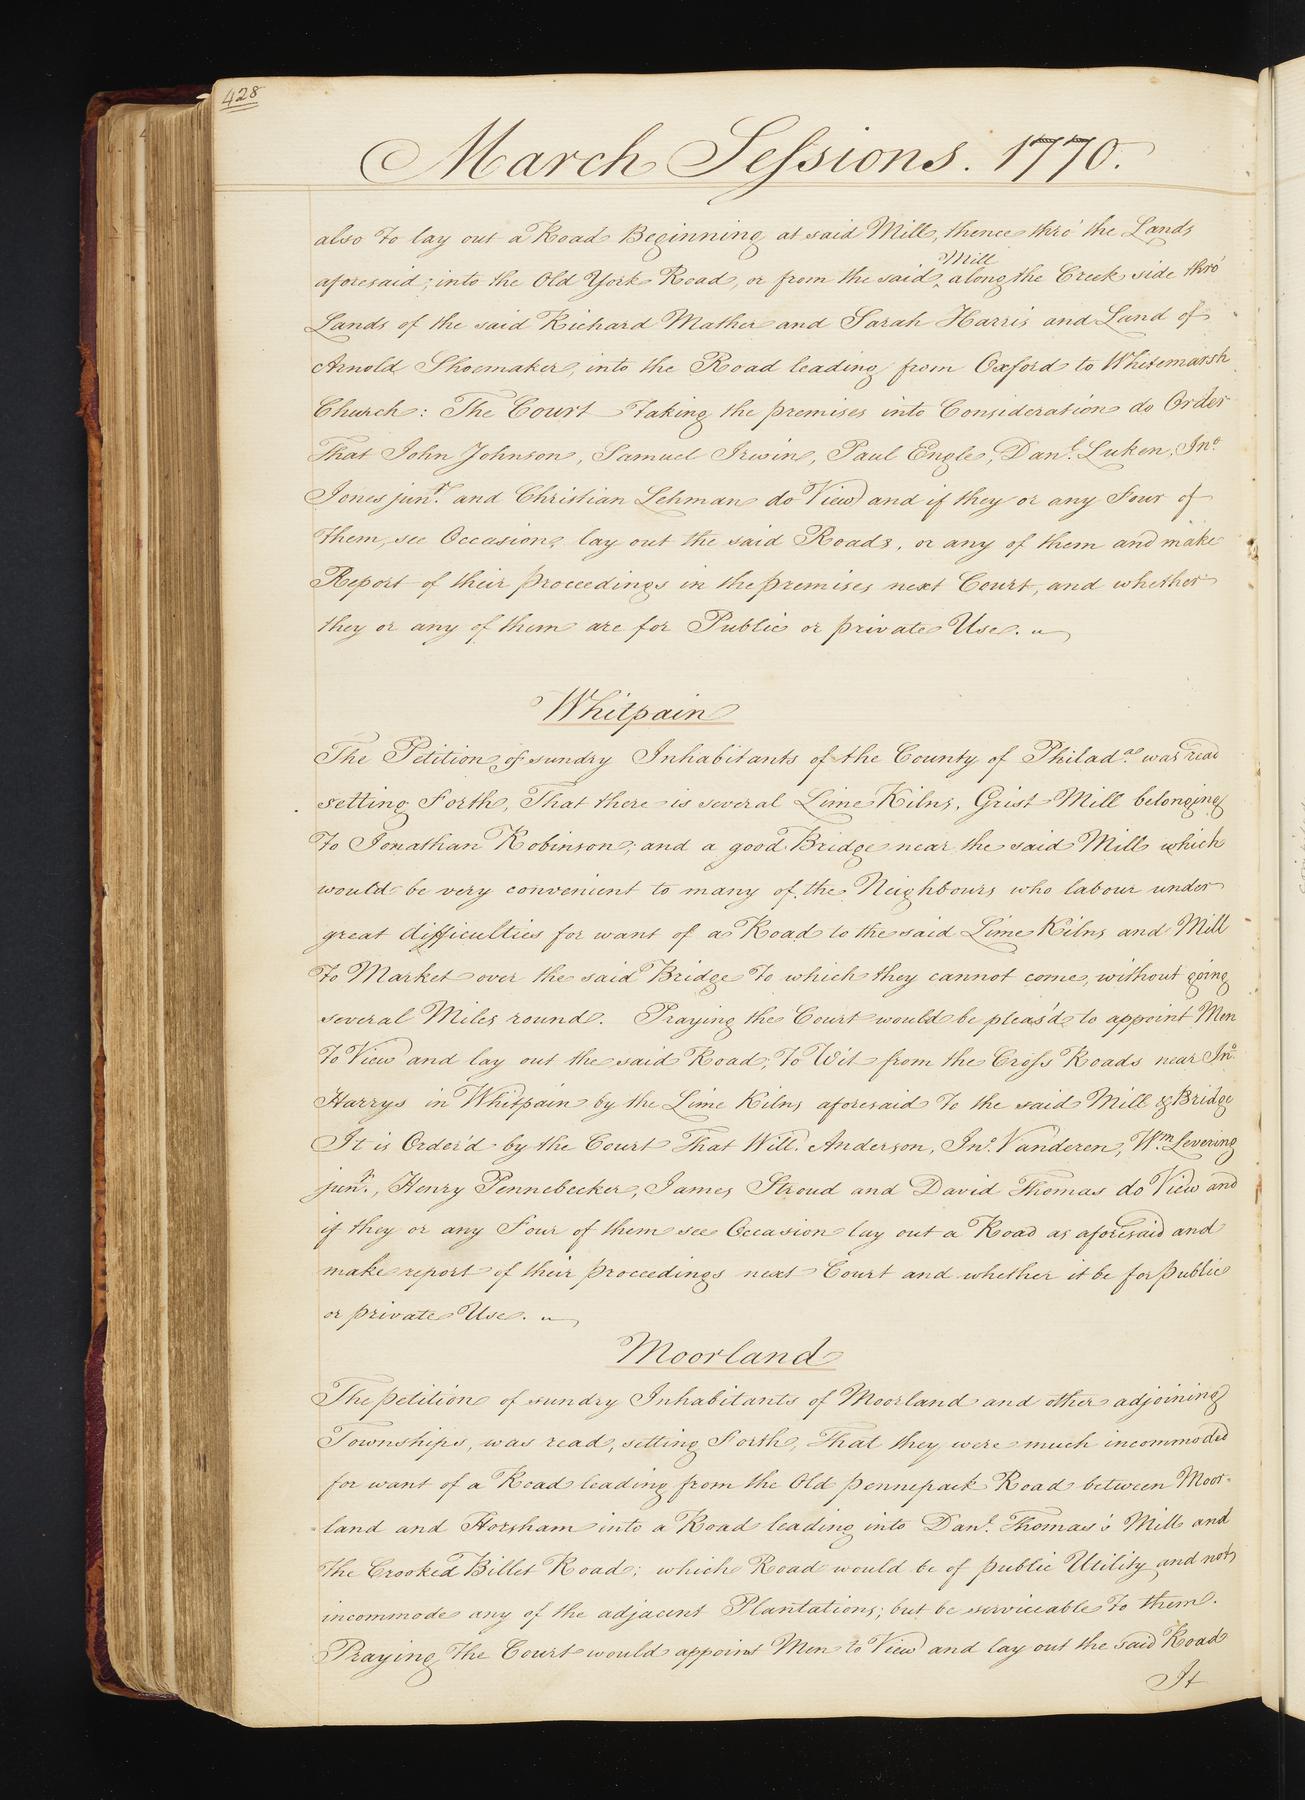 428
March Sessions. 1770.
also to lay out a Road Beginning at said Mill, thence thro' the Lands
aforesaid; into the Old York Road, or from the said ^Mill along the Creek side thro'
Lands of the said Richard Mather and Sarah Harris and Land of
Arnold Shoemaker, into the Road leading from Oxford to Whitemarsh
Church: The Court taking the premises into Consideration do Order
That John Johnson, Samuel Irwin, Paul Engle, Danl. Luken, Jno.
Jones junr. and Christian Lehman do View and if they or any Four of
them, see Occasion, lay out the said Roads, or any of them and make
Report of their proceedings in the premises next Court, and whether
they or any of them are for Public or private Use.
Whitpain
The Petition of sundry Inhabitants of the County of Philada. was read
setting Forth, That there is several Lime Kilns, Grist Mill belonging
to Jonathan Robinson; and a good Bridge near the said Mill which
would be very convenient to many of the Neighbours who labour under
great difficulties for want of a Road to the said Lime Kilns and Mill
to Market over the said Bridge to which they cannot come, without going
several Miles round. Praying the Court would be pleas'd to appoint Men
to View and lay out the said Road, to Wit from the Cross Roads near Jno.
Harrys in Whitpain by the Lime Kilns aforesaid to the said Mill & Bridge
It is Order'd by the Court That Will. Anderson, Jno. Vanderen, Wm. Levering
junr., Henry Pennebecker, James Stroud and David Thomas do View and
if they or any Four of them see Occasion lay out a Road as aforesaid and
make report of their proceedings next Court and whether it be for public
or private Use.
Moorland
The petition of sundry Inhabitants of Moorland and other adjoining
Townships, was read, setting Forth, That they were much incommoded
for want of a Road leading from the Old Pennepack Road between Moor-
land and Horsham into a Road leading into Danl. Thomas's Mill and
the Crooked Billet Road; which Road would be of public Utility and not
incommode any of the adjacent Plantations; but be serviceable to them.
Praying the Court would appoint Men to View and lay out the said Road
It